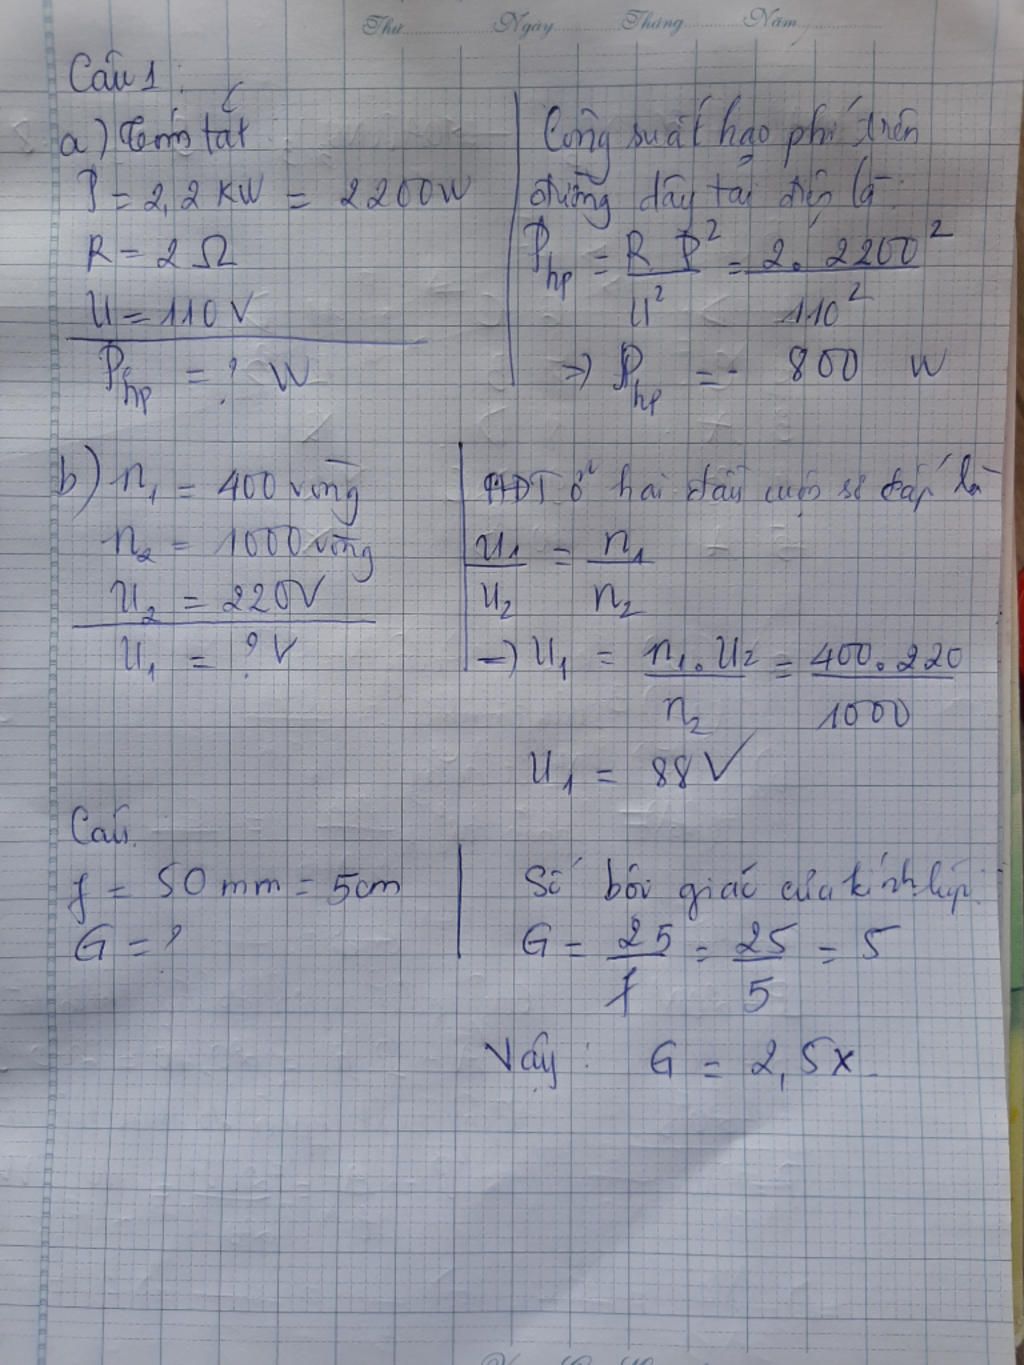 Thứ Ngày Tháng Năm
Câu 1:
a) Tóm tắt
P = 2,2 KW = 2200W
R = 2 Ω
U = 110 V
P hp = ? W
Công suất hao phí trên
đường dây tải điện là:
P hp = R P² / U² = 2. 2200² / 110²
=> P hp = 800 W
b) n₁ = 400 vòng
n₂ = 1000 vòng
U₂ = 220V
U₁ = ? V
HĐT ở hai đầu cuộn sơ cấp là
U₁ / U₂ = n₁ / n₂
=> U₁ = n₁. U₂ / n₂ = 400. 220 / 1000
U₁ = 88 V
Câu
f = 50 mm = 5cm
G = ?
Số bội giác của kính lúp:
G = 25 / f = 25 / 5 = 5
Vậy: G = 2,5x